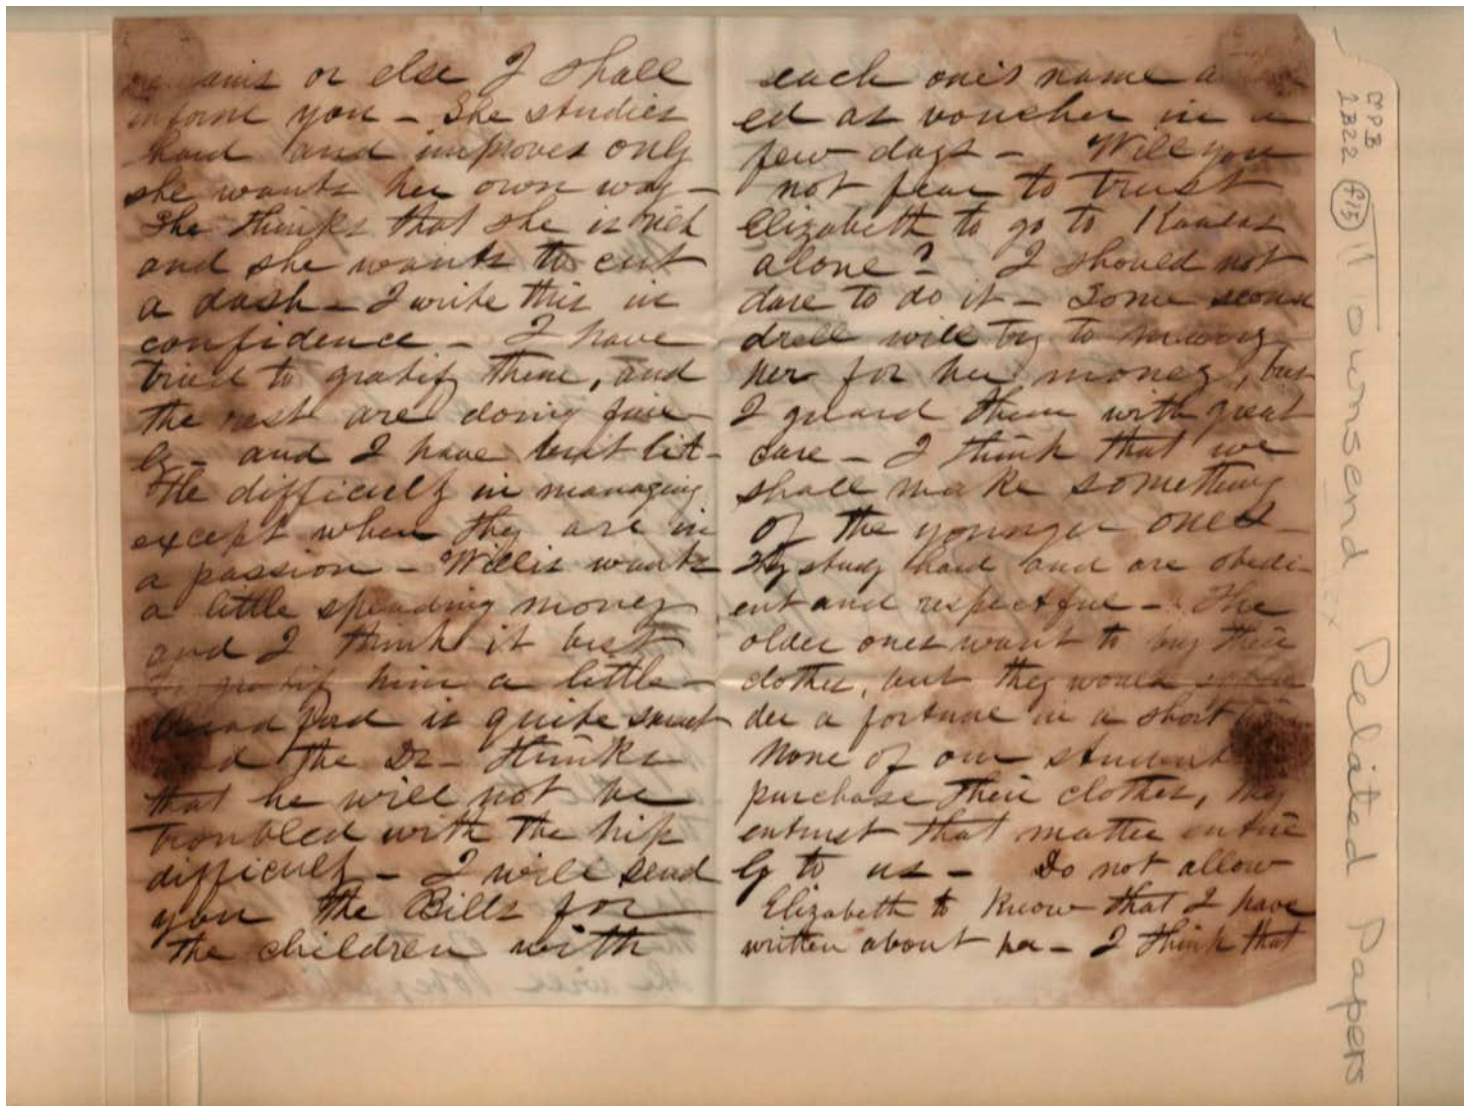 or else I shall
inform you – She studies
hard and improves only
she wants her own way –
She thinks that she is rich
and she wants to cut
a dash – I write this in
confidence – I have
tried to gratify them, and
the rest are doing fine-
ly – and I have but lit-
tle difficulty in managing
except when they are in
a passion – Willis wants
a little spending money
and I think it best
to gratify him a little –
is quite smart
the Dr – thinks
that he will not be
troubled with the hip
difficulty – I will send
you the Bills for
the children with
each one's name
ed as voucher in a
few days – Will you
not fear to trust
Elizabeth to go to Kansas
alone? I should not
dare to do it – Some scoun
drell will try to marry
her for her money, but
I guard them with great
care – I think that we
shall make something
of the younger ones –
They study hard and are obedi-
ent and respectful – The
older ones want to buy their
clothes, but they would
der a fortune in a short
None of our students
purchase their clothes, they
entrust that matter entire
ly to us – Do not allow
Elizabeth to know that I have
written about her – I think that
OPB
2B22 f15
Townsend
Related Papers